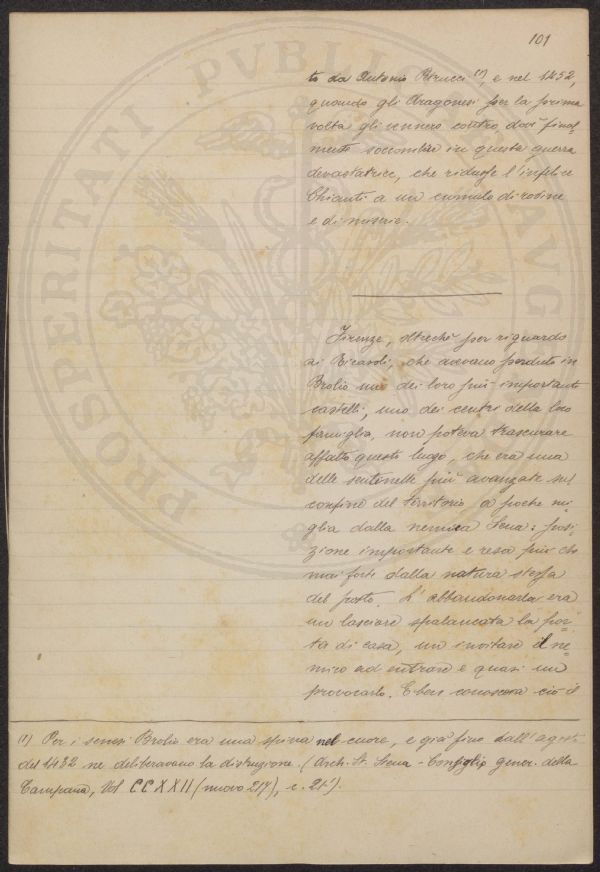 101
to da Antonio Perucci (1), e nel 1452,
quando gli Aragonesi per la prima
volta gli vennero contro, dové final
mente soccombere in questa guerra
devastatrice, che ridusse l'infelice
Chianti a un cumulo di rovine
e di miserie.
Firenze, oltreché per riguardo
ai Ricasoli, che avevano perduto in
Brolio uno dei loro più importanti
castelli, uno dei centri della loro
famiglia, non poteva trascurare
affatto questo luogo, che era una
delle sentinelle più avanzate sul
confine del territorio a poche mi
glia dalla nemica Siena: posi
zione importante e resa più che
mai forte dalla natura stessa
del posto. L'abbandonarla era
un lasciare spalancata la por=
ta di casa, un invitare il ne=
mico ad entrare e quasi un
provocarlo. E ben conosceva ciò il
(1) Per i senesi Brolio era una spina nel cuore, e già fino dall'agosto
del 1432 ne deliberavano la distruzione. (Arch. St. Siena - Consiglio gener. della
Campana, Vol CCXXII (nuovo 217), c. 21t).
PROSPERITATI PVBLICAE AVG